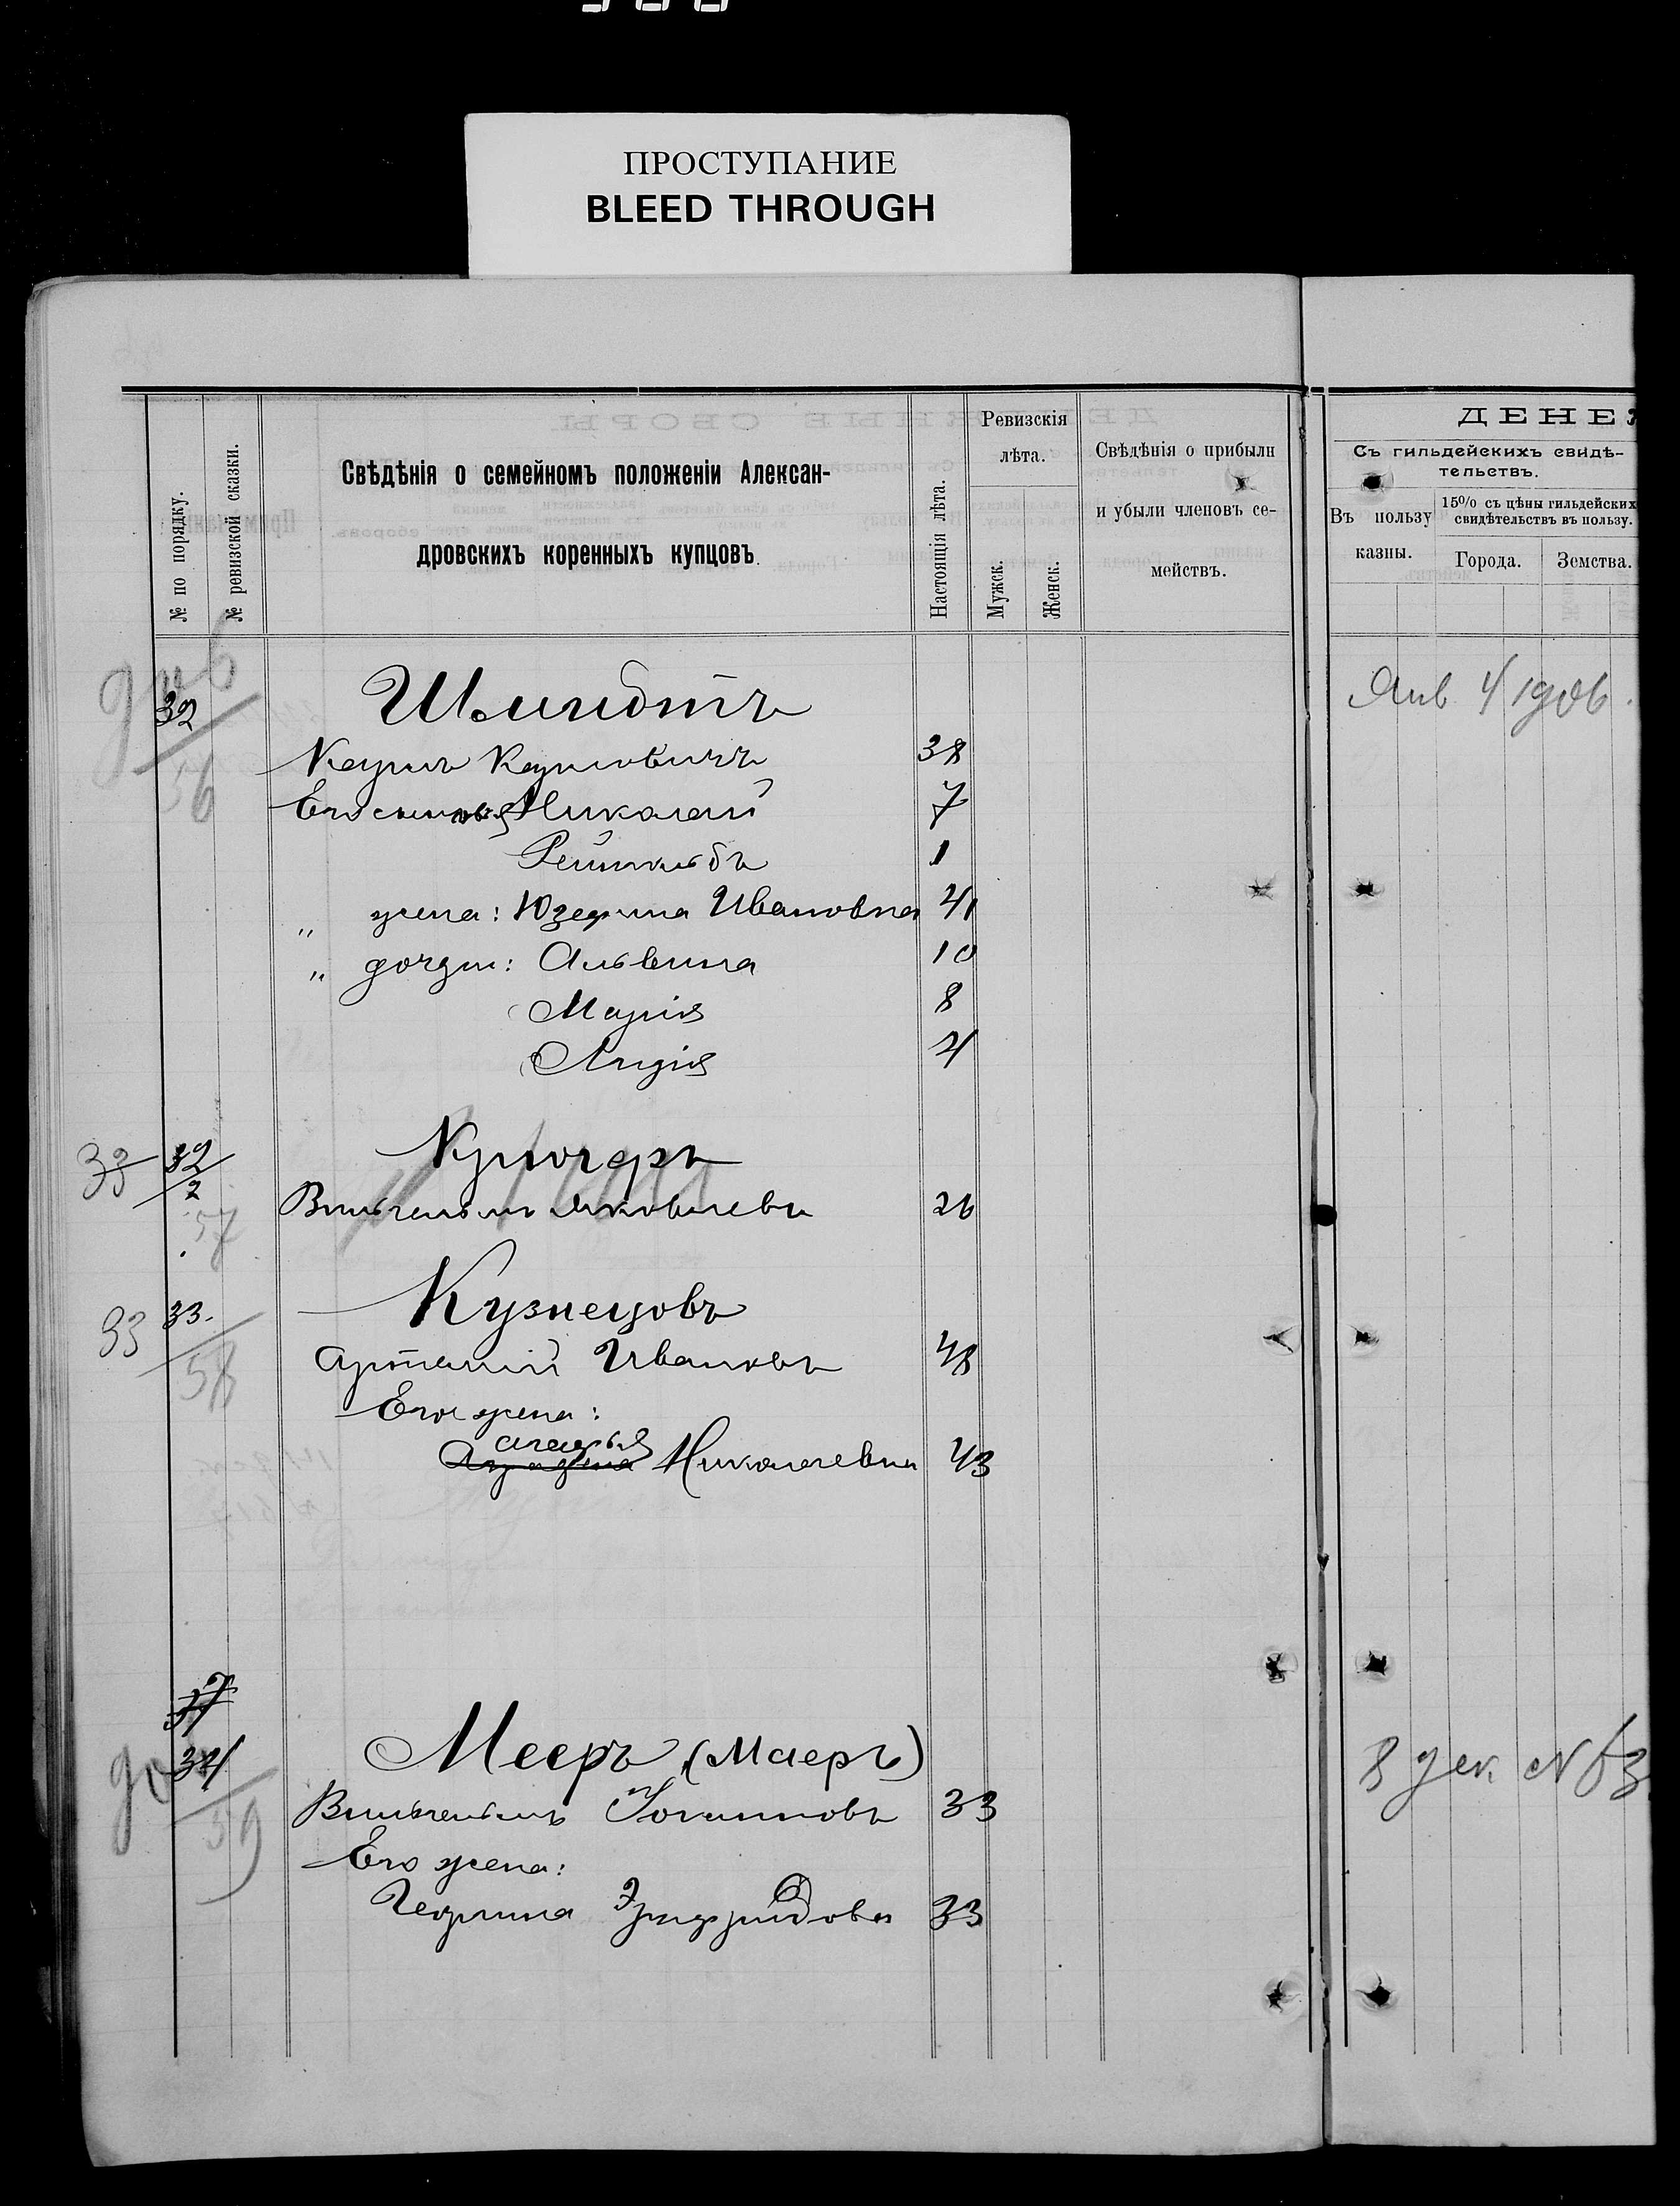 ПРОСТУПАНИЕ
BLEED THROUGH
№ по порядку.
№ ревизской сказки.
Свѣдѣнія о семейномъ положеніи Алексан-
дровскихъ коренныхъ купцовъ.
Настоящія лѣта.
Ревизскія
лѣта.
Мужск.
Женск.
Свѣдѣнія о прибыли
и убыли членовъ се-
мействъ.
ДЕНЕ
Съ гильдейскихъ свидѣ-
тельствъ.
Въ пользу
казны.
15% съ цѣны гильдейских
свидѣтельствъ въ пользу.
Города.
Земства.
32 Шмидтъ
56
Янв 4 1906.
Карлъ Карловичъ 38
Его сыновья Николай 7
Рейнгольдъ 1
„ жена: Юзефина Ивановна 41
„ дочери: Альвина 10
Марія 8
Лидія 4
33 32/2 Крюгеръ
57
Вильгельмъ Яковлевъ 26
33 33. Кузнецовъ
58
Артемій Ивановъ 48
Его жена:
Агафья
Николаевна 43
37
34 Мееръ (Маеръ)
59
8 дек N 63
Вильгельмъ Іоганновъ 33
Его жена:
33